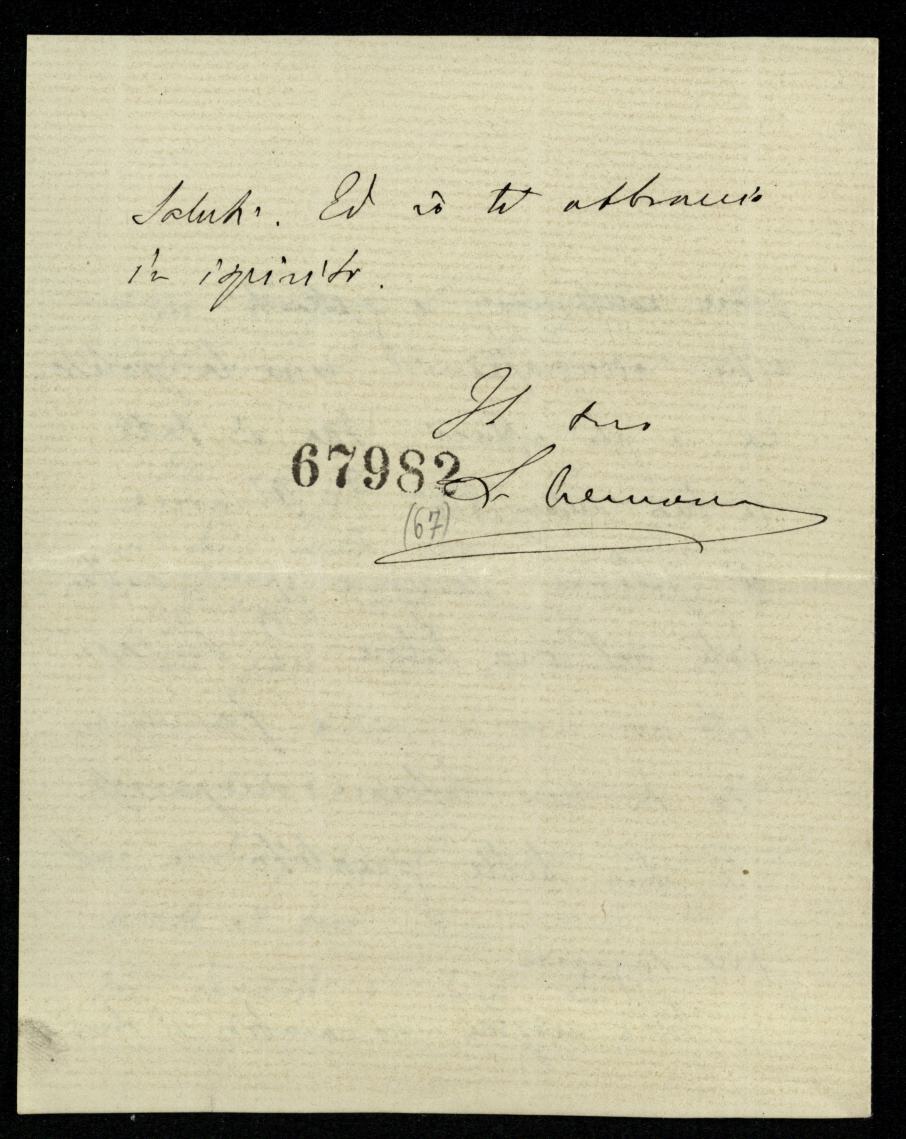 saluti. Ed io ti abbraccio
in ispirito.
Il tuo
67982 L. Cremona
(67)